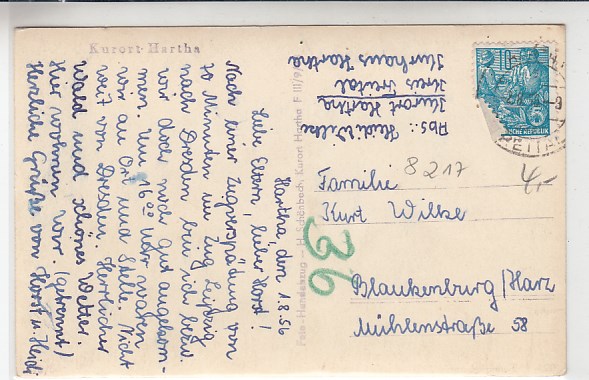 Kurort Hartha
Hartha, den 1.8.56
Liebe Eltern, lieber Horst!
Nach einer Zugverspätung von
70 Minuten im Zug Leipzig
nach Dresden bin ich bzw.
wir doch noch gut angekom-
men. Um 16⁰⁰ Uhr waren
wir an Ort und Stelle. Nicht
weit von Dresden. Herrlicher
Wald und schönes Wetter.
Hier wohnen wir. (getrennt)
Herzliche Grüße von Horst u. Heidi
Abs.: Heidi Wilke
Kurort Hartha
Kreis Freital
Kurhaus Hartha
Foto-Handabzug — H. Schönbach, Kurort Hartha F III/9/
10
5
8217
4,-
36
Familie
Kurt Wilke
Blankenburg/Harz
Mühlenstraße 58